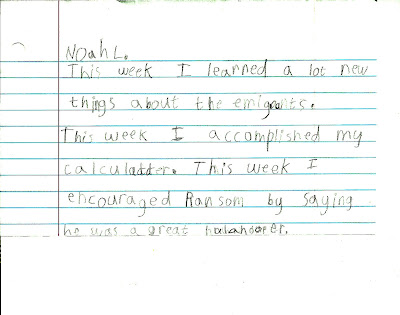 Noah L.
This week I learned a lot new
things about the emigrants.
This week I accomplished my
calculadter. This week I
encouraged Ransom by saying
he was a great